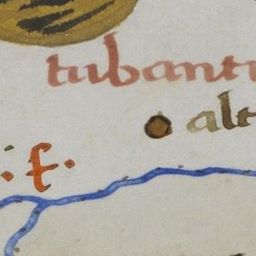 tubantu
alt
. f.